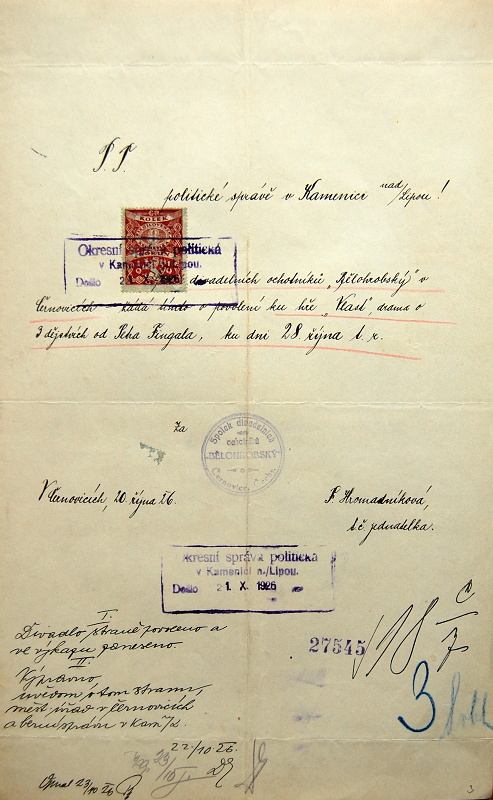 P. T.
politické správě v Kamenici nad/Lipou!
KOLEK
Okresní správa politická
v Kamenici n./Lipou.
Došlo
divadelních ochotníků „Bělohrobský" v
Černovicích žádá tímto o povolení ku hře „Vlast", drama o
3 dějstvích od Petra Fingala, ku dni 28. října t. r.
Za
Spolek divadelních
ochotníků
"BĚLOHROBSKÝ"
Černovice, Čechy.
V Černovicích, 20. října 26.
F. Hromadníková,
t. č. jednatelka.
Okresní správa politická
v Kamenici n./Lipou.
Došlo 21. X. 1926
27545
I.
Divadlo straně povoleno a
ve výkazu
II.
Vypraveno
uvědom. o tom stranu,
měst. úřad v Černovicích
a berní správu v Kam./L.
22/10 26.
23/10
23/10 26
18
3
3